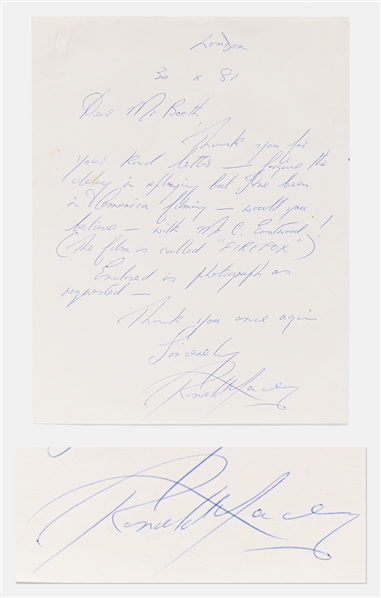 London
30 x 81
Dear Mr Booth,
Thank you for
your kind letter — forgive the
delay in replying but I've been
in America filming — would you
believe — with Mr C. Eastwood!
(The film is called "FIREFOX")
Enclosed is photograph as
requested —
Thank you once again
Sincerely
Ronald Lacey
Ronald Lacey